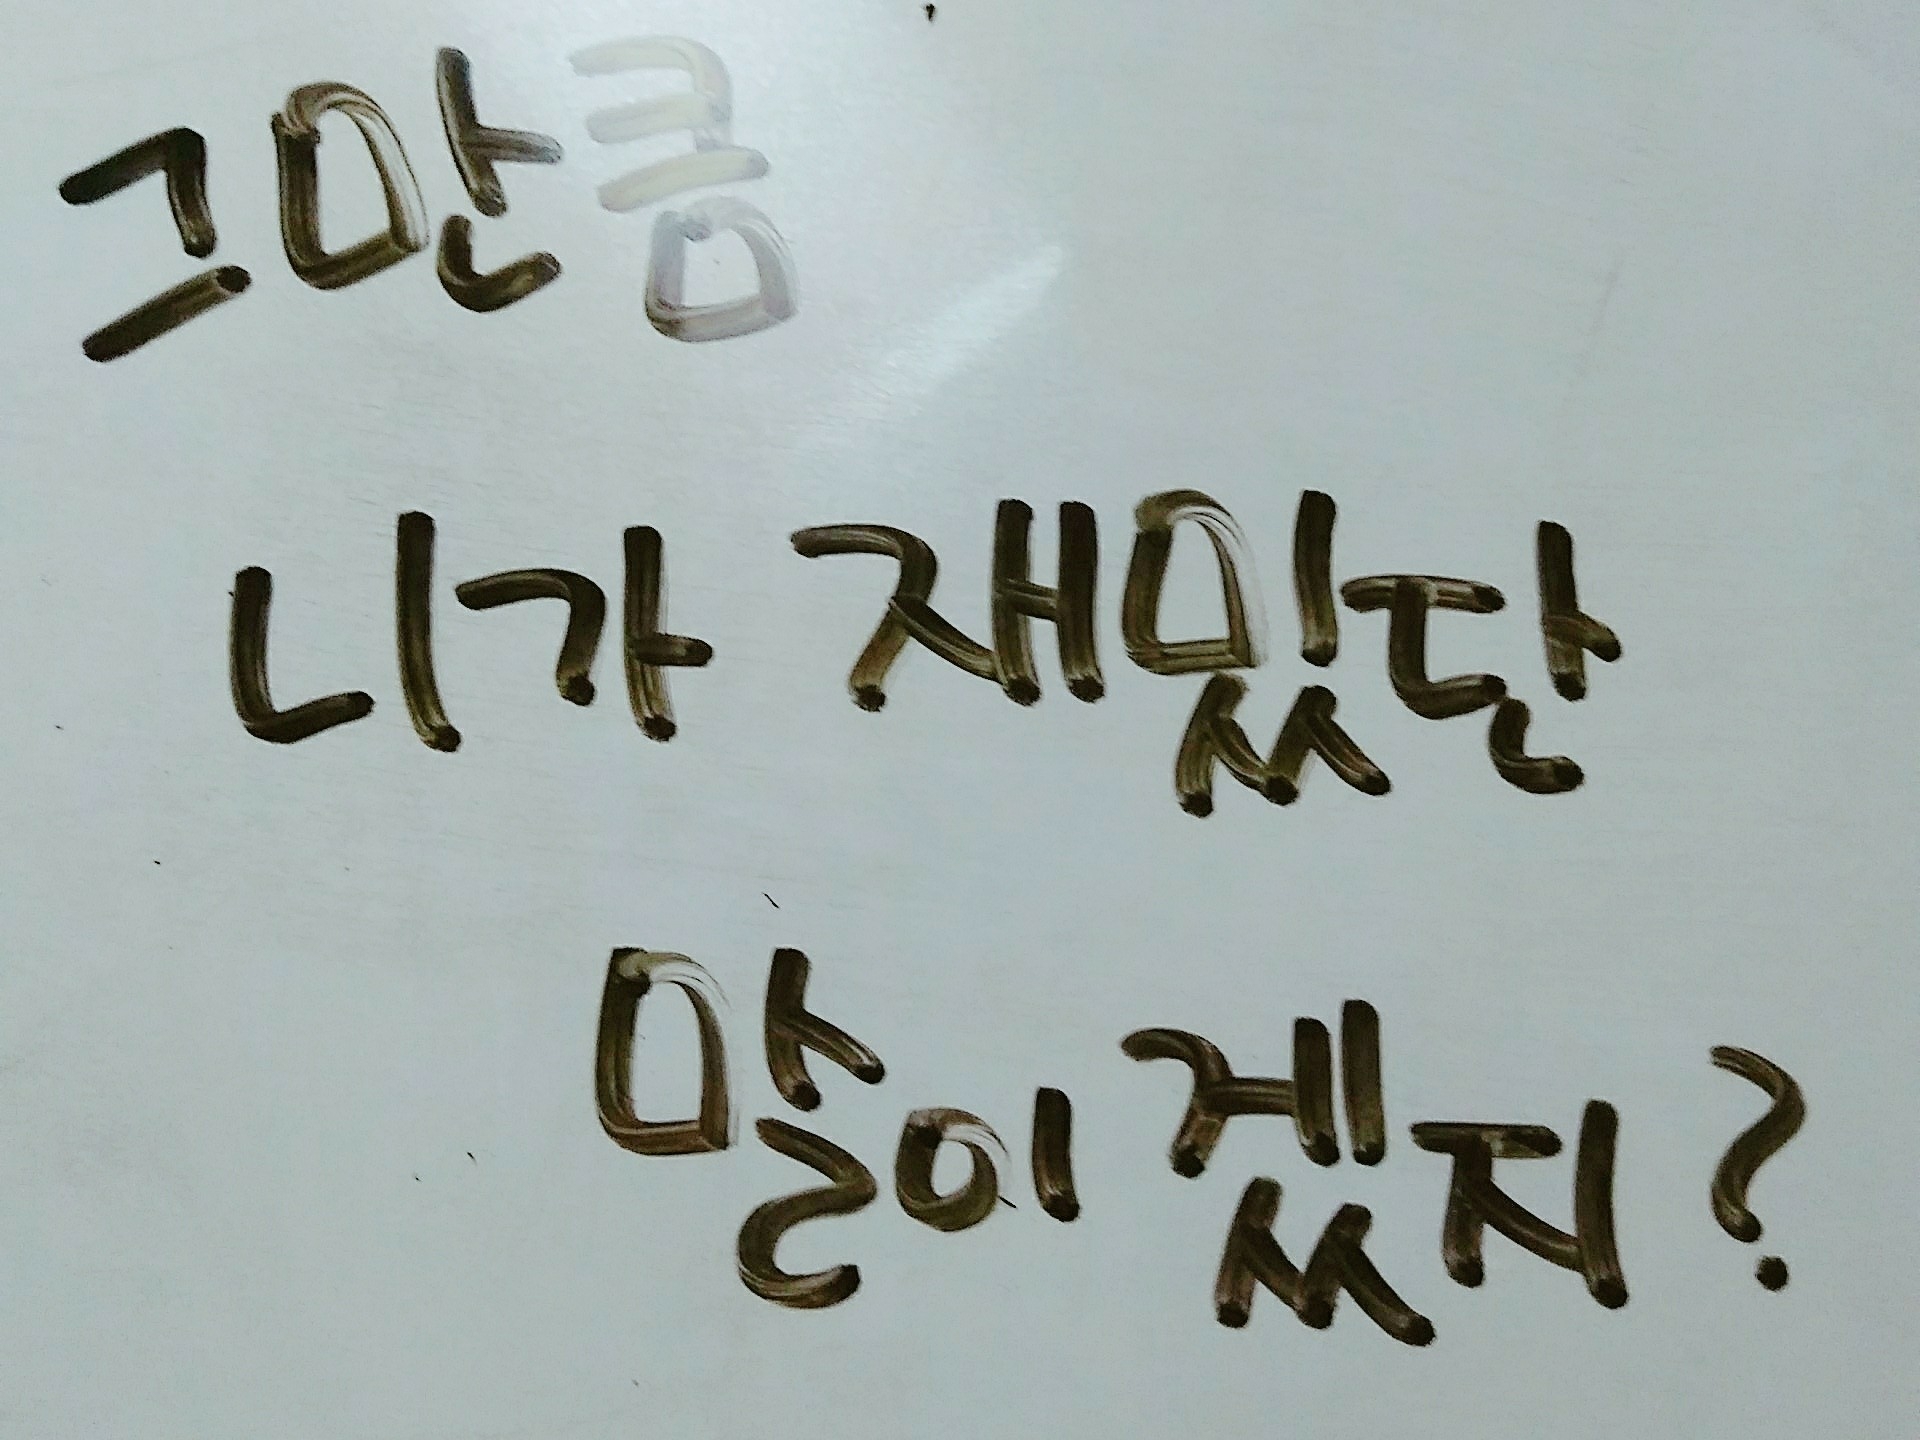 그만큼
니가 재밌단
말이겠지?